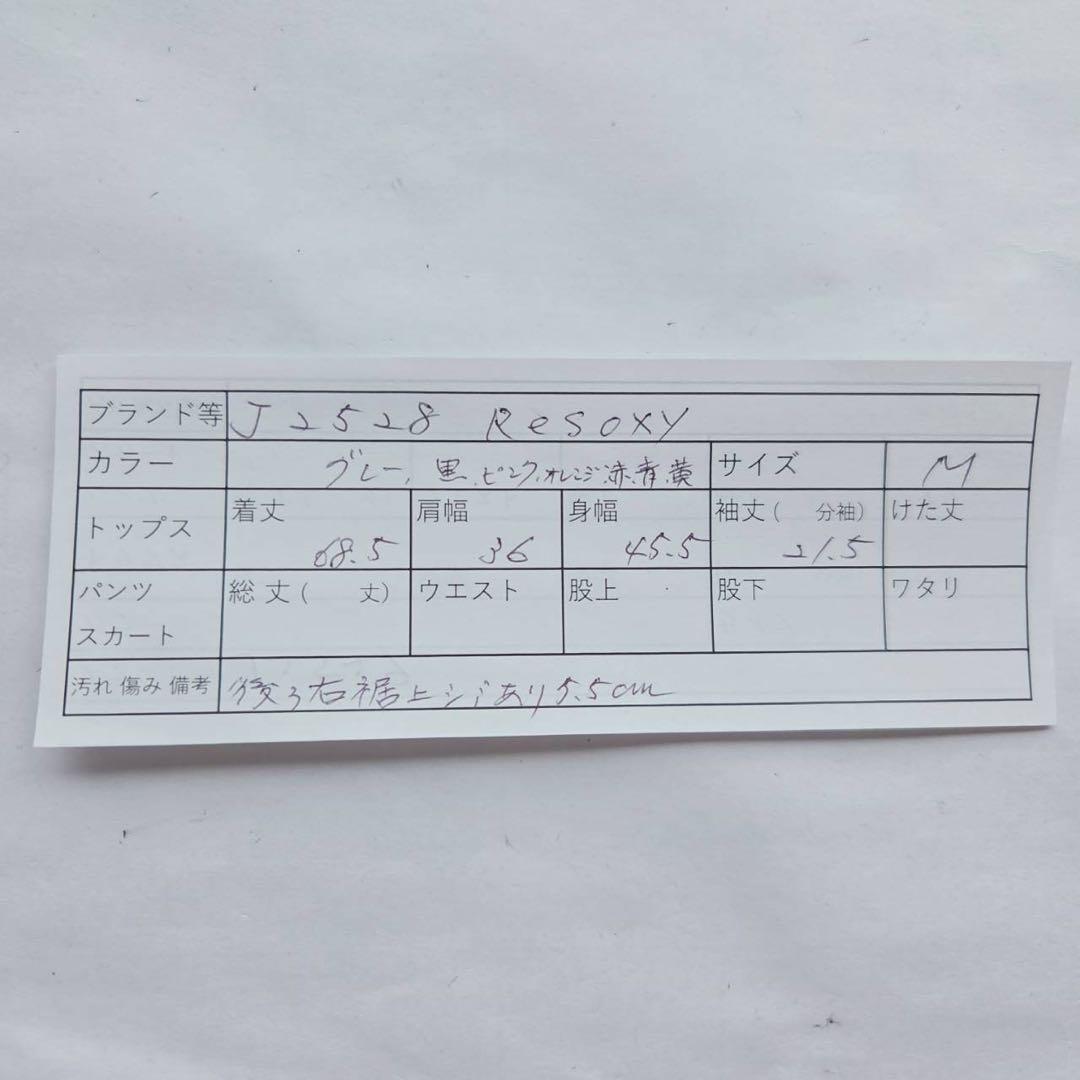 ブランド等 J2528 Resoxy
カラー グレー、黒、ピンク、オレンジ、赤、青、黄 サイズ M
トップス 着丈 68.5 肩幅 36 身幅 45.5 袖丈(　分袖) 21.5 けた丈
パンツ スカート 総丈(　丈) ウエスト 股上 股下 ワタリ
汚れ 傷み 備考 後ろ右裾上シミあり5.5cm